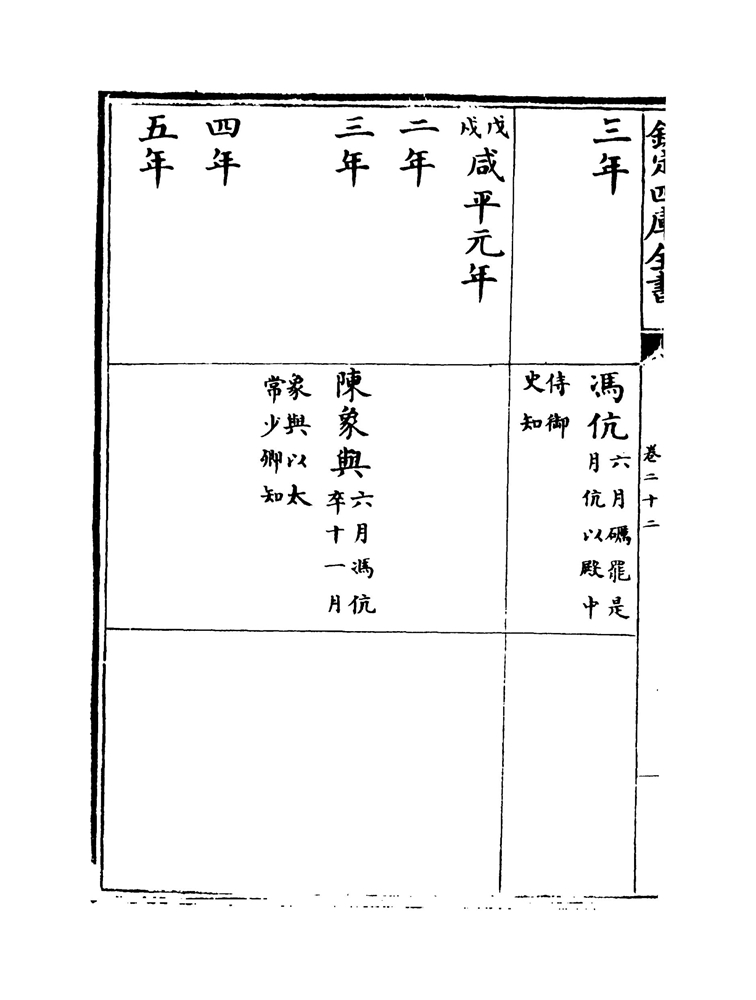 欽定四庫全書
卷二十二
三年
馮伉六月礪罷是
月伉以殿中
侍御
史知
戊戌咸平元年
二年
三年
陳象輿六月馮伉
卒十一月
象輿以太
常少卿知
四年
五年